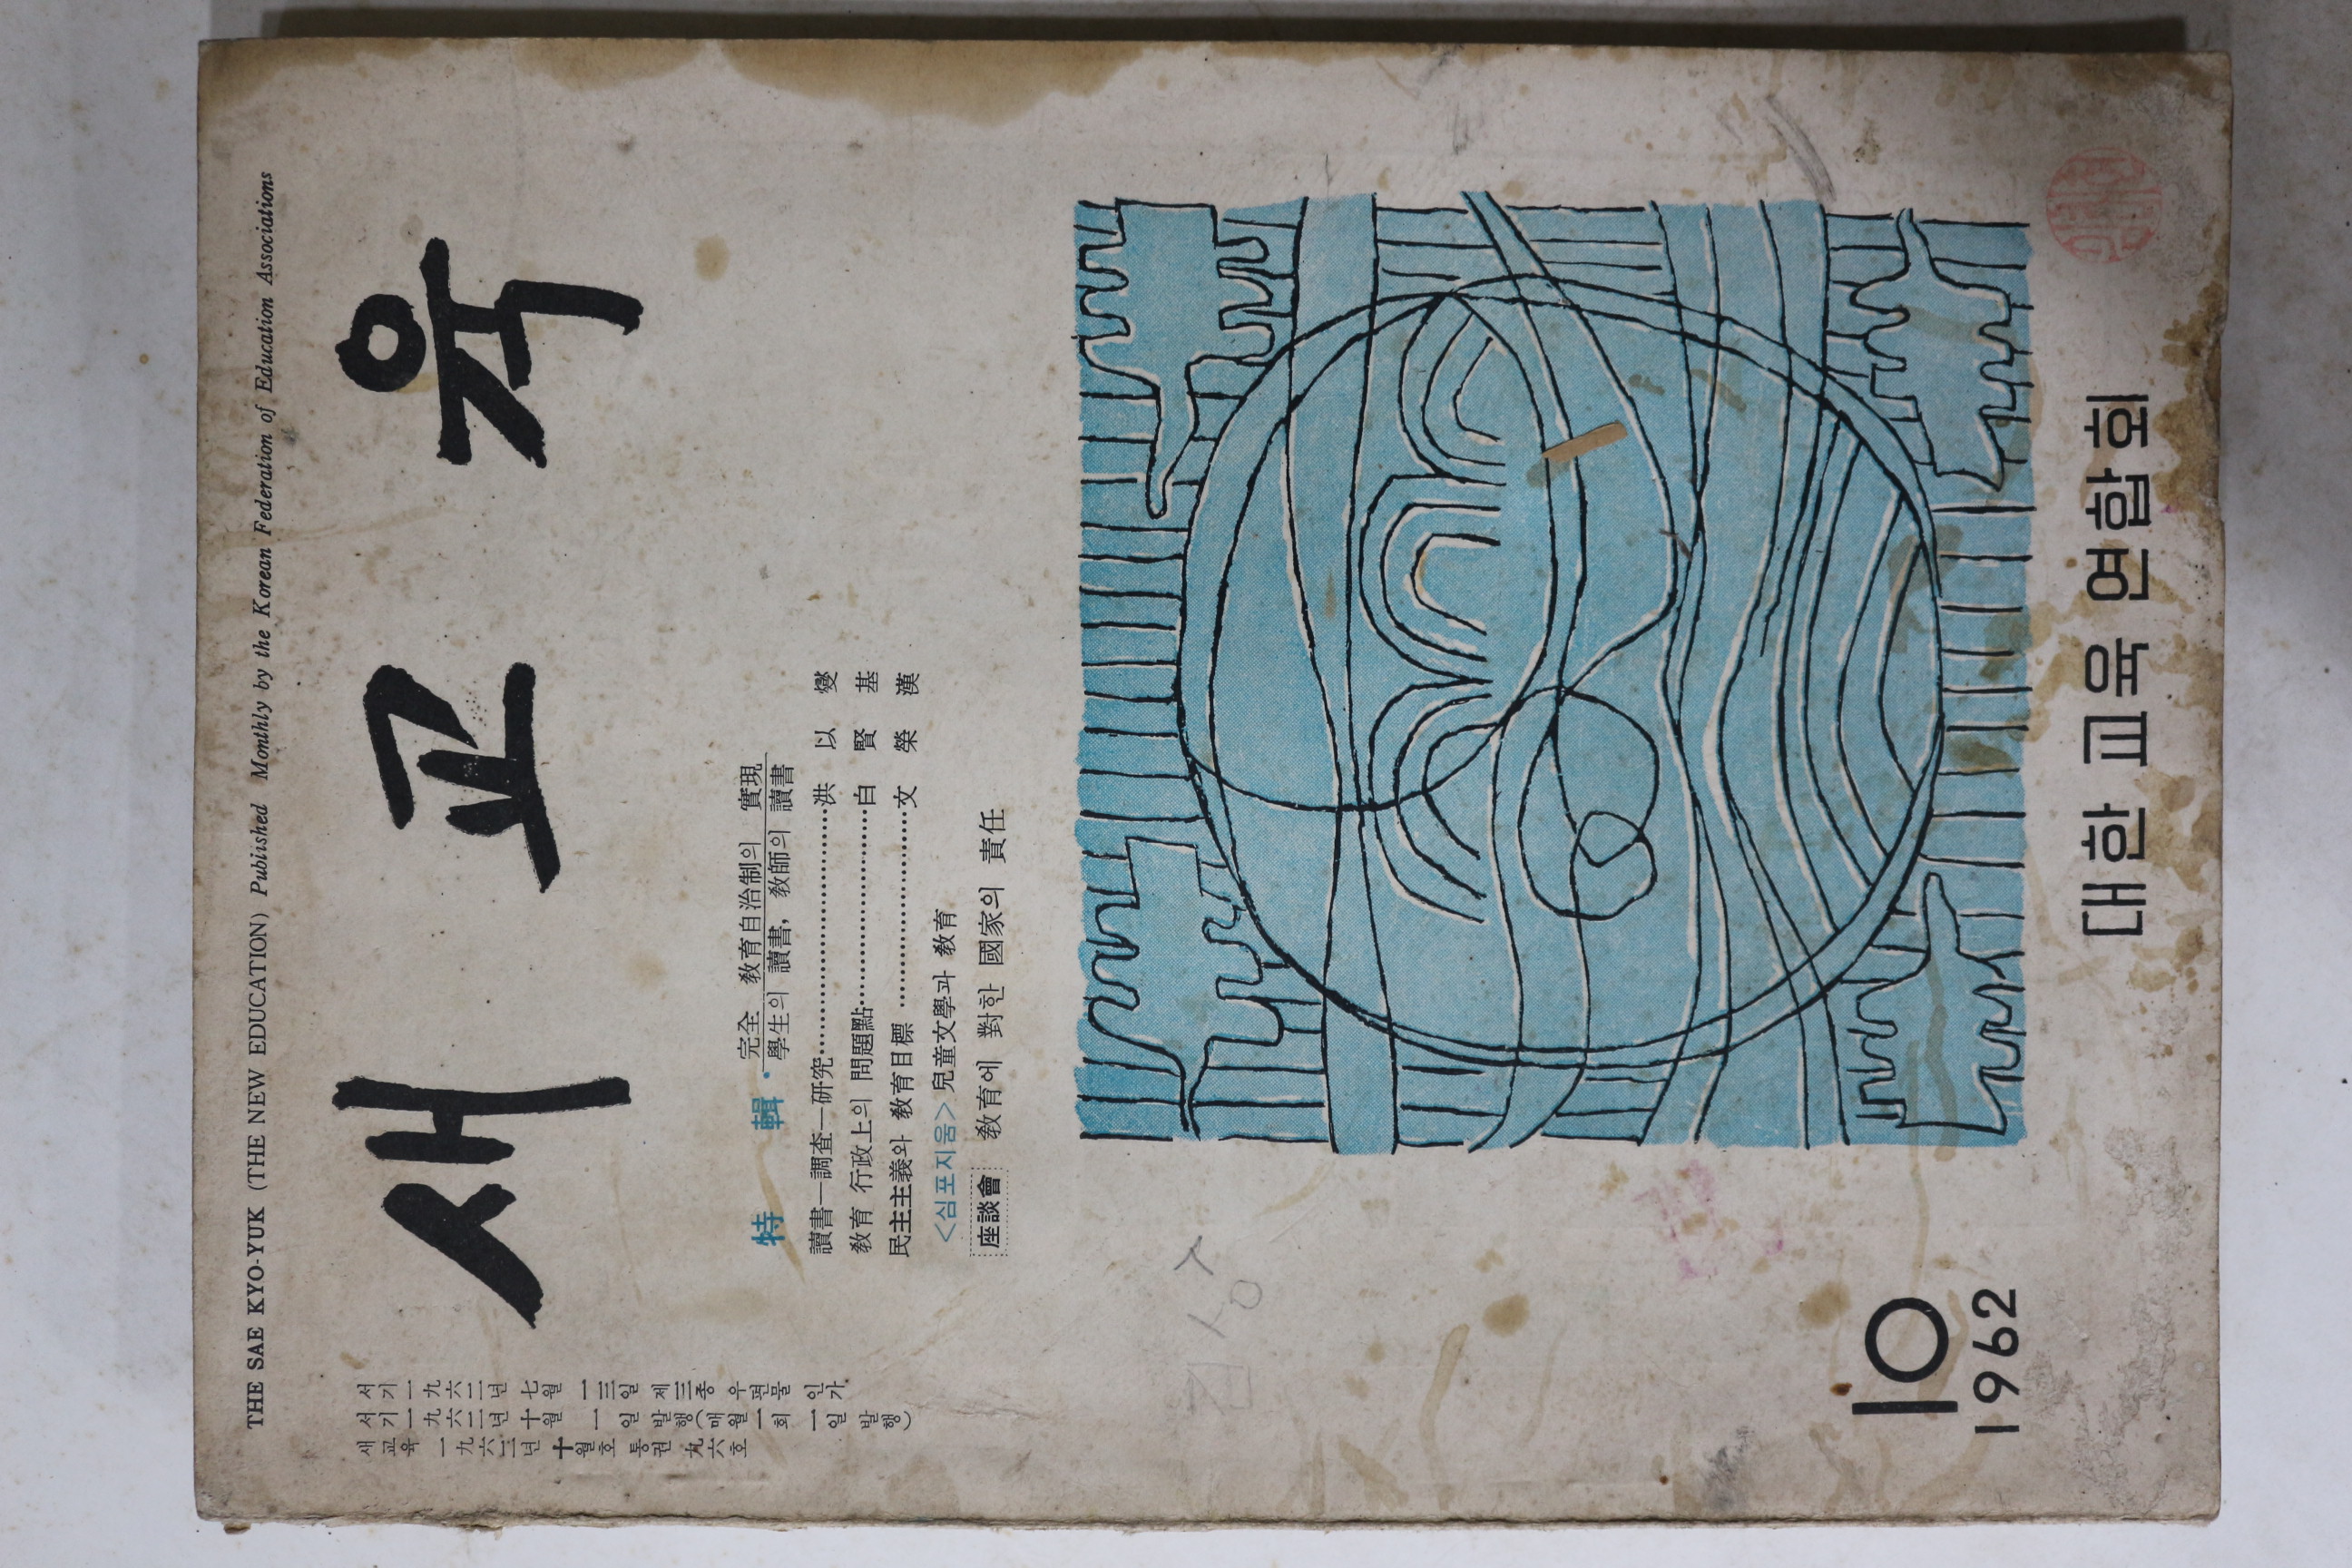 THE SAE KYO-YUK (THE NEW EDUCATION) Published Monthly by the Korean Federation of Education Associations
새교육
서기一九六二년 七월 一三일 제三종 우편물 인가
서기一九六二년 十월 一일 발행(매월一회 一일 발행)
새교육 一九六二년 十월호 통권 九六호
特輯·
完全 敎育自治制의 實現
學生의 讀書, 敎師의 讀書
讀書—調査—研究……………………洪以燮
敎育 行政上의 問題點……………………白賢基
民主主義와 敎育目標……………………文榮漢
<심포지움> 兒童文學과 敎育
座談會 敎育에 對한 國家의 責任
10
1962
대한교육연합회